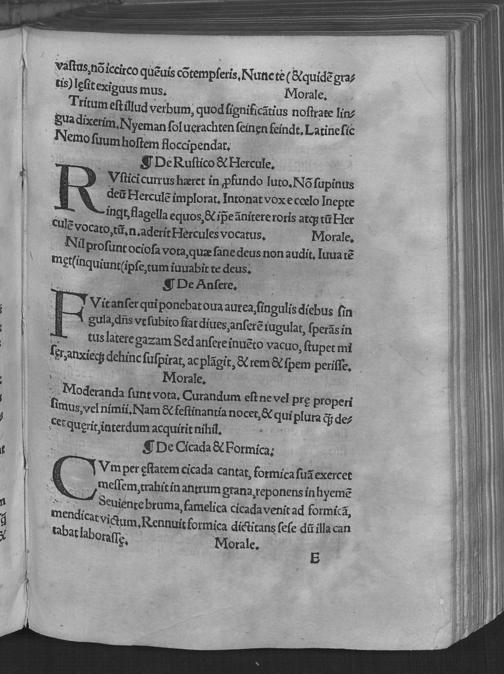 vastus,nõ iccirco quẽuis cõtempseris.Nunc te (& quidẽ gra-
tis) lęsit exiguus mus. Morale.
Tritum est illud verbum, quod significãtius nostrate lin-
gua dixerim.Nyeman sol uerachten seinen feindt.Latine sic
Nemo suum hostem floccipendat.
¶ De Rustico & Hercule.
RVstici currus hæret in ꝓfundo luto.Nõ supinus
deũ Herculẽ implorat. Intonat vox e cœlo Inepte
inqt,flagella equos,& ip̃e ãnitere roris atqꝫ tũ Her
culẽ vocato,tũ.n.aderit Hercules vocatus. Morale.
Nil prosunt ociosa vota,quæ sane deus non audit.Iuua tẽ
met(inquiunt(ipse,tum iuuabit te deus.
¶ De Ansere.
FVit anser qui ponebat oua aurea,singulis diebus sin
gula,dñs vt subito fiat diues,anserẽ iugulat, sperãs in
tus latere gazam Sed ansere inuẽto vacuo, stupet mi
ser,anxieqꝫ dehinc suspirat, ac plãgit, & rem & spem perisse.
Morale.
Moderanda sunt vota. Curandum est ne vel prę properi
simus,vel nimii. Nam & festinantia nocet,& qui plura q̃ꝫ de-
cet quęrit,interdum acquirit nihil.
¶ De Cicada & Formica;
CVm per ęstatem cicada cantat, formica suã exercet
messem,trahit in antrum grana,reponens in hyemẽ
Seuiente bruma, famelica cicada venit ad formicã,
mendicat victum. Rennuit formica dictitans sese dũ illa can
tabat laborasse. Morale.
E